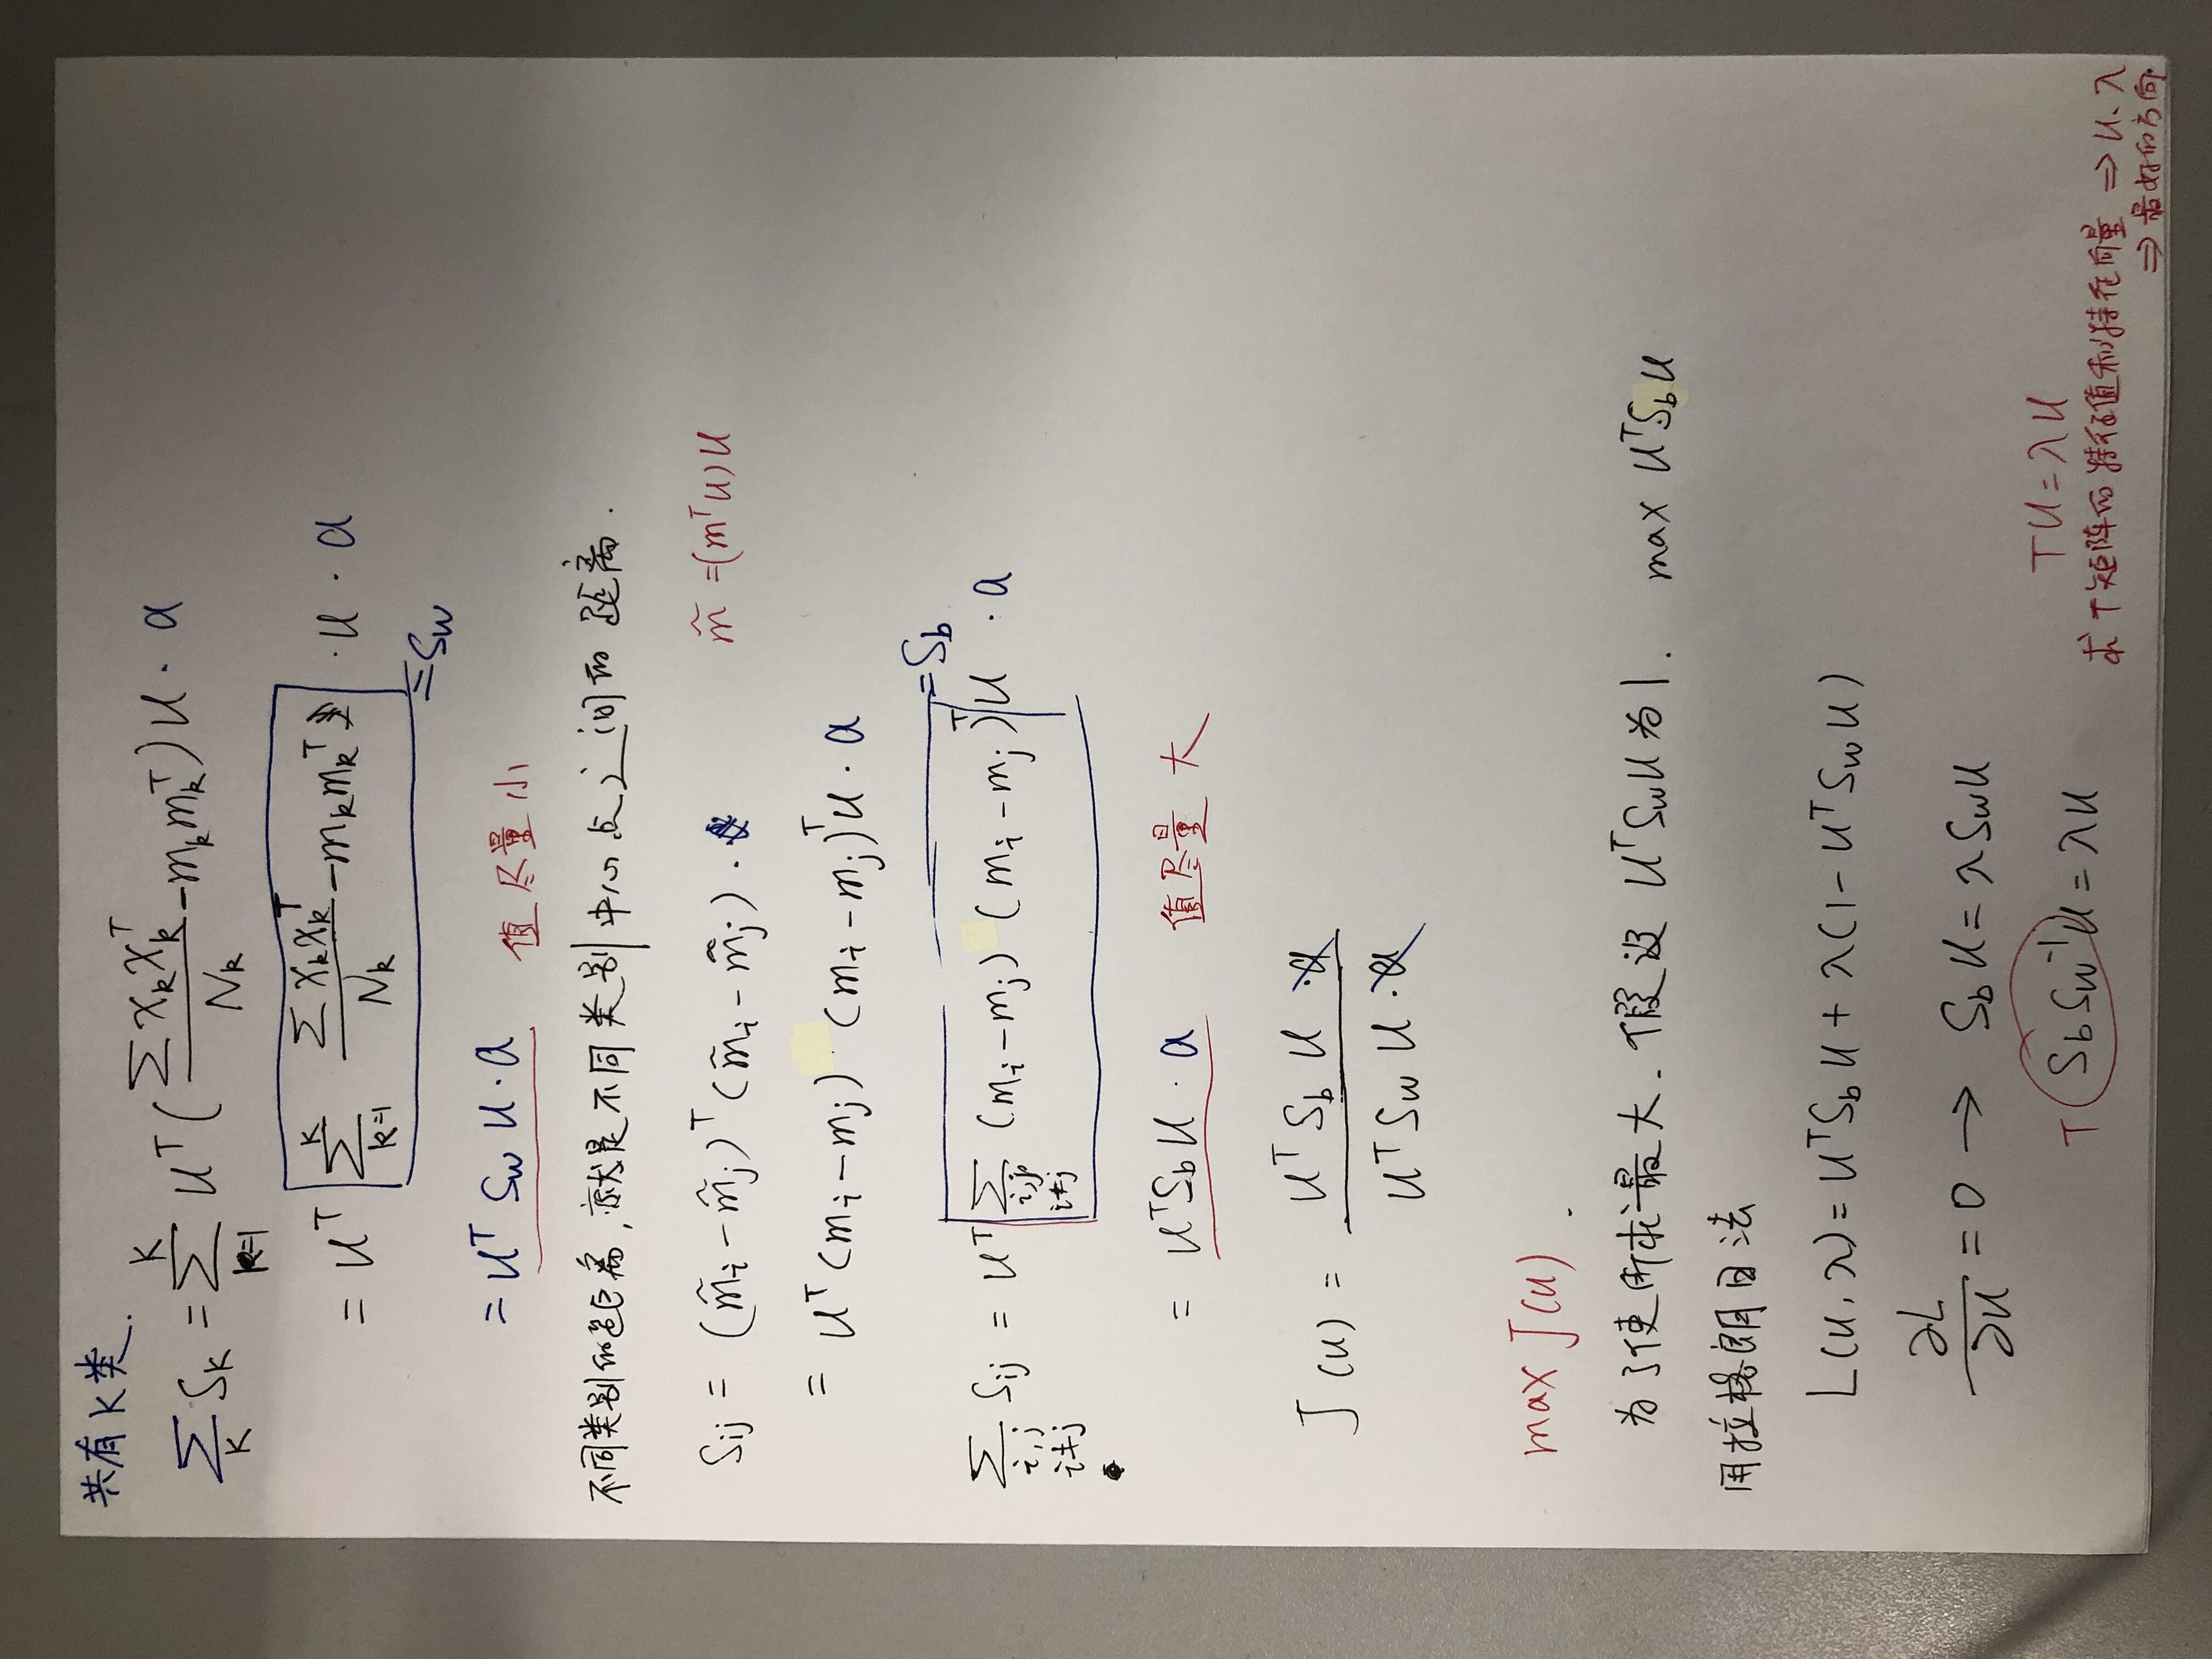 共有K类.
∑_K S_K = ∑_{k=1}^{K} u^T ( ∑ x_k x_k^T / N_k − m_k m_k^T ) u · a
= u^T ∑_{k=1}^{K} ∑ x_k x_k^T / N_k − m_k m_k^T · u · a
= S_w
= u^T S_w u · a 值尽量小
不同类别的距离, 就是不同类别中心点之间的距离.
S_ij = (m̃_i − m̃_j)^T (m̃_i − m̃_j) · m̃ = (m^T u) u
= u^T (m_i − m_j) (m_i − m_j)^T u · a
= S_b
∑_{i,j i≠j} S_ij = u^T ∑_{i,j i≠j} (m_i − m_j) (m_i − m_j)^T u · a
= u^T S_b u · a 值尽量大
J(u) = u^T S_b u · a / u^T S_w u · a
max J(u) .
为了使所求最大. 假设 u^T S_w u 为1. max u^T S_b u
用拉格朗日法
L(u, λ) = u^T S_b u + λ(1 − u^T S_w u)
∂L/∂u = 0 → S_b u = λ S_w u
T S_b S_w^{-1} u = λu Tu = λu
求T矩阵的特征值和特征向量 ⇒ u. λ
⇒ 最好的方向.